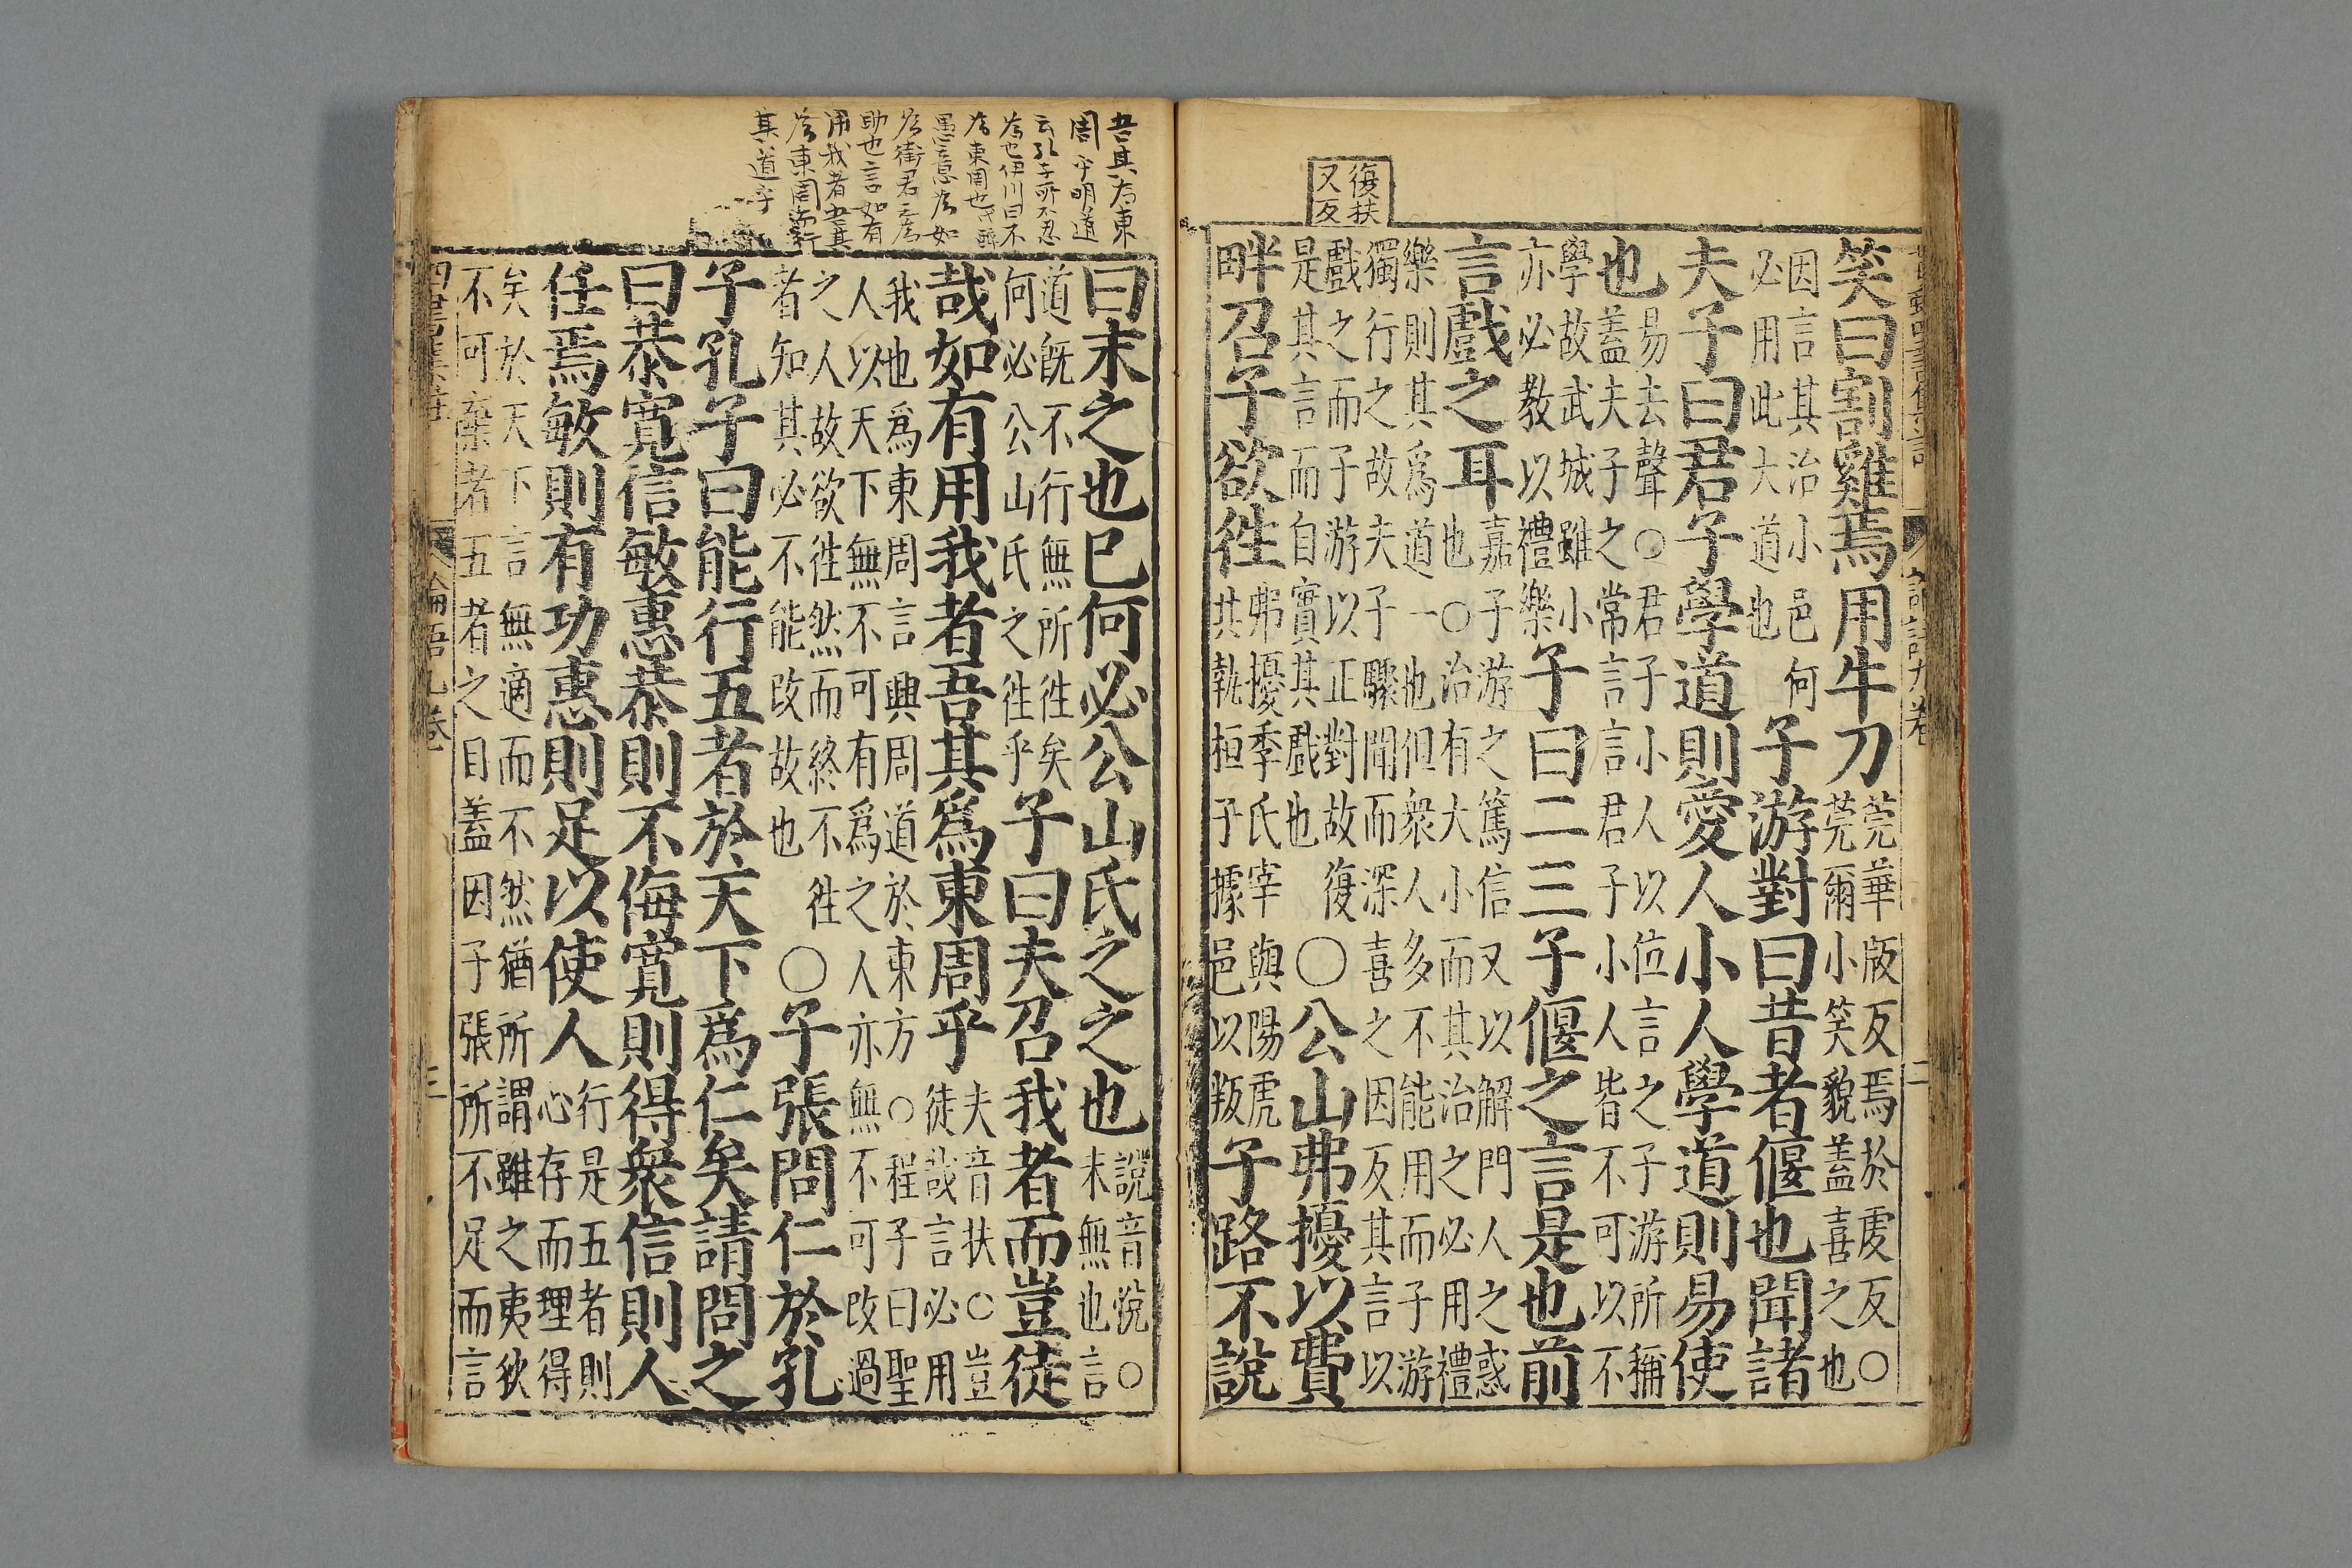 復扶
又反
笑曰割雞焉用牛刀
莞華版反焉於虔反○
莞爾小笑貌蓋喜之也
因言其治小邑何
必用此大道也
子游對曰昔者偃也聞諸
夫子曰君子學道則愛人小人學道則易使
也
易去聲○君子小人以位言之子游所稱
蓋夫子之常言言君子小人皆不可以不
學故武城雖小
亦必教以禮樂
子曰二三子偃之言是也前
言戲之耳
嘉子游之篤信又以解門人之惑
也○治有大小而其治之必用禮
樂則其爲道一也但衆人多不能用而子游
獨行之故夫子驟聞而深喜之因反其言以
戲之而子游以正對故復
是其言而自實其戲也
○公山弗擾以費
畔召子欲徃
弗擾季氏宰與陽虎
共執桓子據邑以叛
子路不說
吾其为東
周乎明道
云孔子所不忍
为也伊川曰不
为東周也
愚意为如
为衛君之爲
助也言如有
用我者吾其
为東周而行
其道乎
曰末之也已何必公山氏之之也
說音悅○
末無也言
道旣不行無所徃矣
何必公山氏之徃乎
子曰夫召我者而豈徒
哉如有用我者吾其爲東周乎
夫音扶○豈
徒哉言必用
我也爲東周言興周道於東方○程子曰聖
人以天下無不可有爲之人亦無不可改過
之人故欲徃然而終不徃
者知其必不能改故也
○子張問仁於孔
子孔子曰能行五者於天下爲仁矣請問之
曰恭寬信敏惠恭則不侮寬則得衆信則人
任焉敏則有功惠則足以使人
行是五者則
心存而理得
矣於天下言無適而不然猶所謂雖之夷狄
不可棄者五者之目蓋因子張所不足而言
論語九卷
三